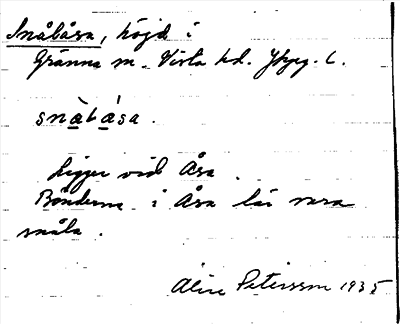 Snålåsa, höjd i
Gränna sn. Vista hd. Jkpg. l.
snàlása.
Ligger vid Åsa.
Bönderna i Åsa lär vara
snåla.
Aline Petersson 1935